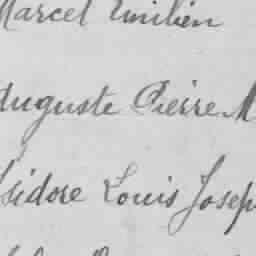 Marcel Emilien
Auguste Pierre M
Isidore Louis Joseph